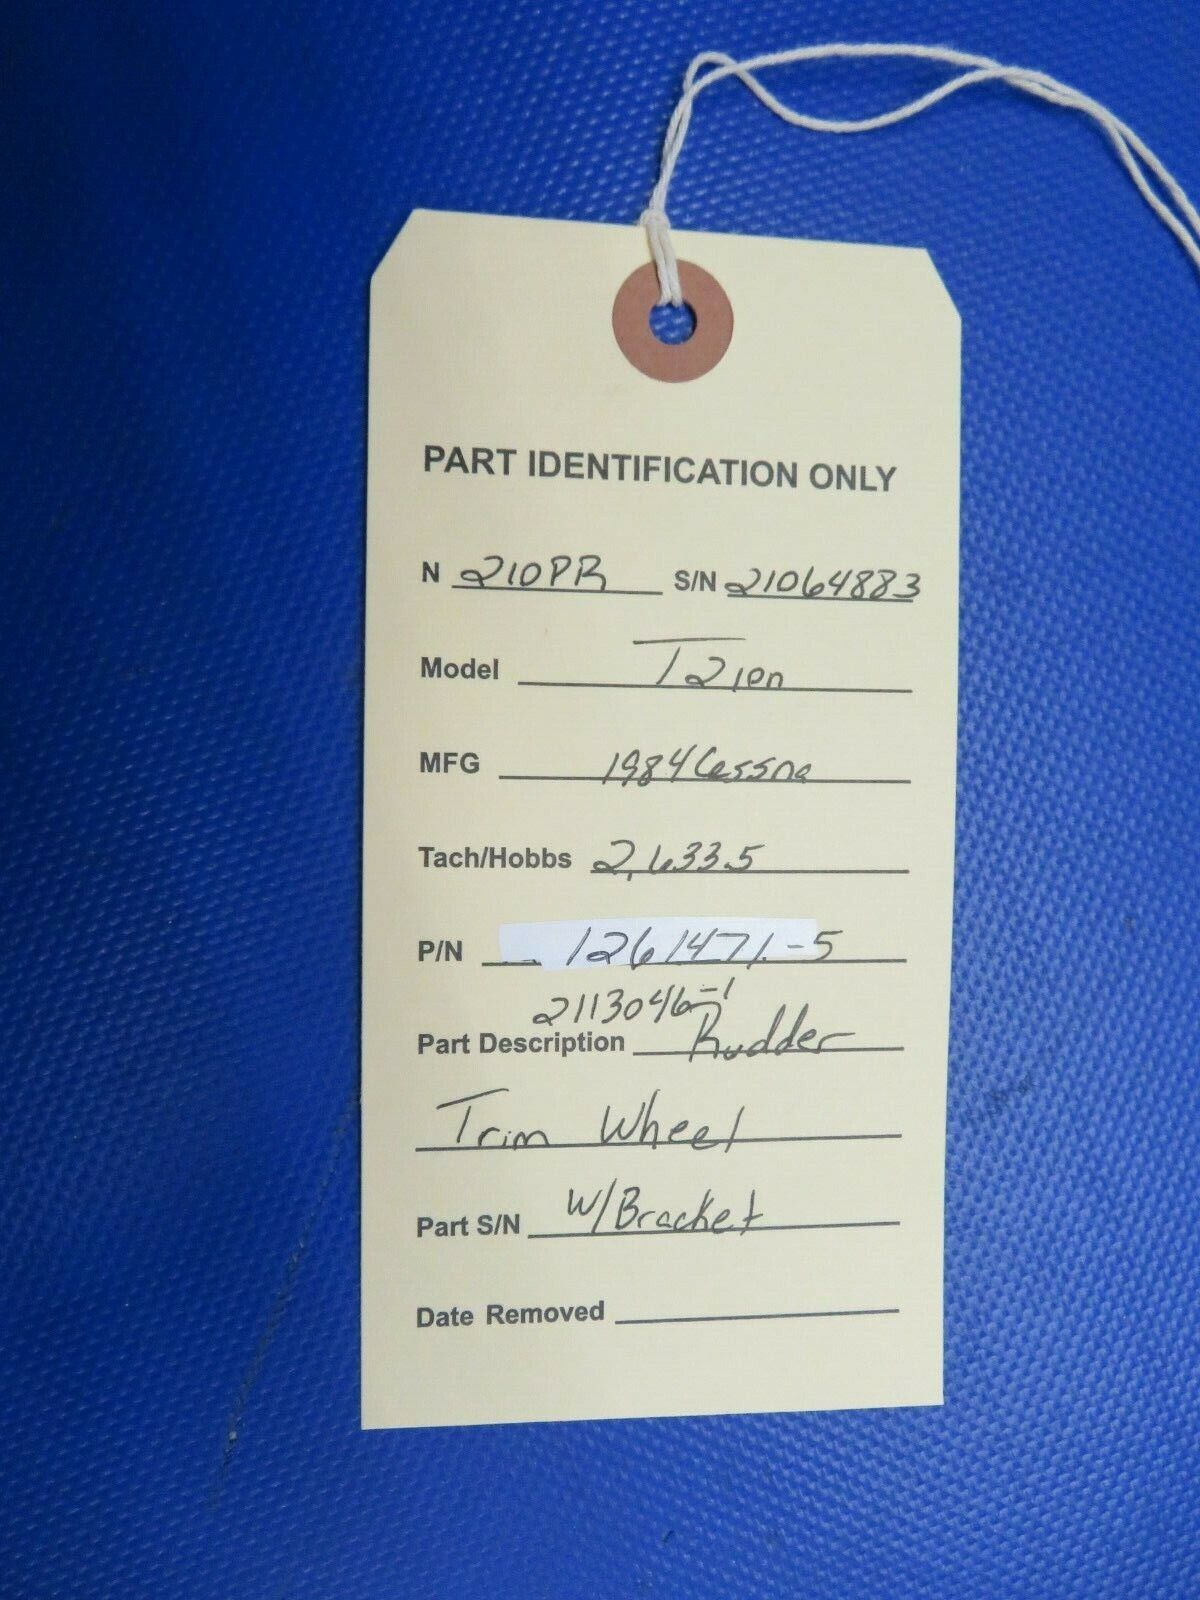 PART IDENTIFICATION ONLY
N 210PR S/N 21064883
Model T210n
MFG 1984 Cessna
Tach/Hobbs 2,633.5
P/N 1261471-5
2113046-1
Part Description Rudder
Trim Wheel
Part S/N W/Bracket
Date Removed